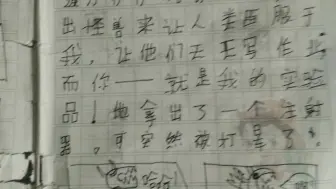 出怪兽来让人类臣服于
我,让他们天天写作业
而你——就是我的实验
品!他拿出了一个注射
器。可突然被打晕了。